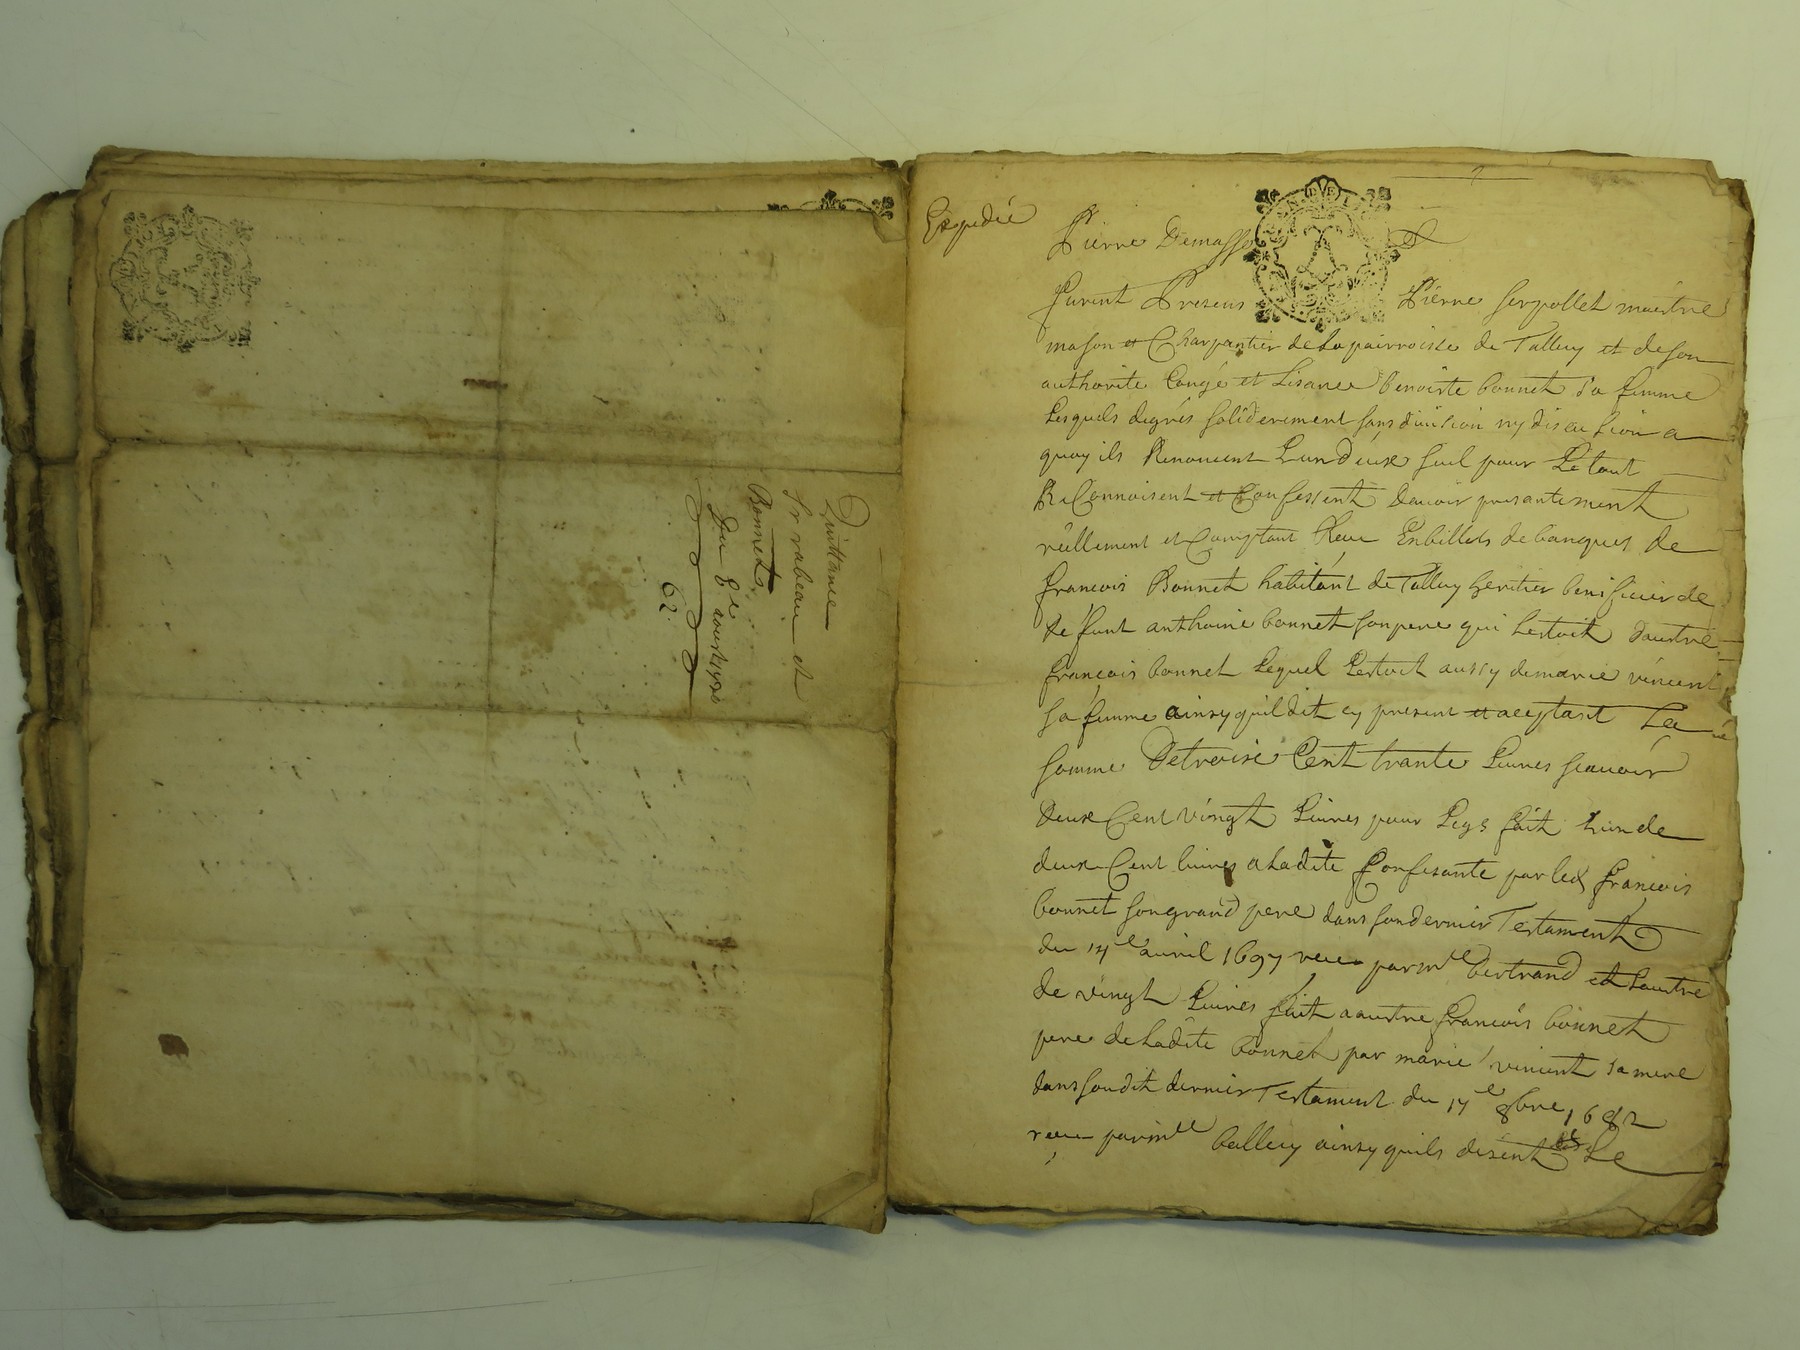 Quittance
Serrabeau et
Bonnet,
Du 8e aoust 1720
62.
Expediè
Pierre Demasse
furent Presens Pierre Serpollet maistre
mason et Charpantier de La pairroisse de Talluy et de son
authorite Congé et Lisance benoiste bonnet sa femme
Lesquels degrés soliderement sans diuision ny discusion a
quoy ils Renoncent Lun deux seul pour Le tout
ReConnoisent et Confessent dauoir presantement
réellement et Comptant Reçu En billets de banques de
francois Bonnet habitant de Talluy heritier benificier de
defunt anthoine bonnet son pere qui Lestoit dautre
francois bonnet Lequel Lestoit aussy de marie vincent
sa femme ainsy quil dit cy present et aceptant La
somme De trois Cent trante Liures scauoir
deux Cent vingt Liures pour Legs fait Lun de
deux Cent liures a Ladite Confesante par led francois
bonnet son grand pere dans son dernier Testament
du 14e auril 1697 reçu par me bertrand et Lautre
de vingt Liures fait a autre francois bonnet
pere de Ladite bonnet par marie vincent sa mere
dans son dit dernier Testament du 14e 8bre 1682
reçu par me ballecy ainsy quils disent Le